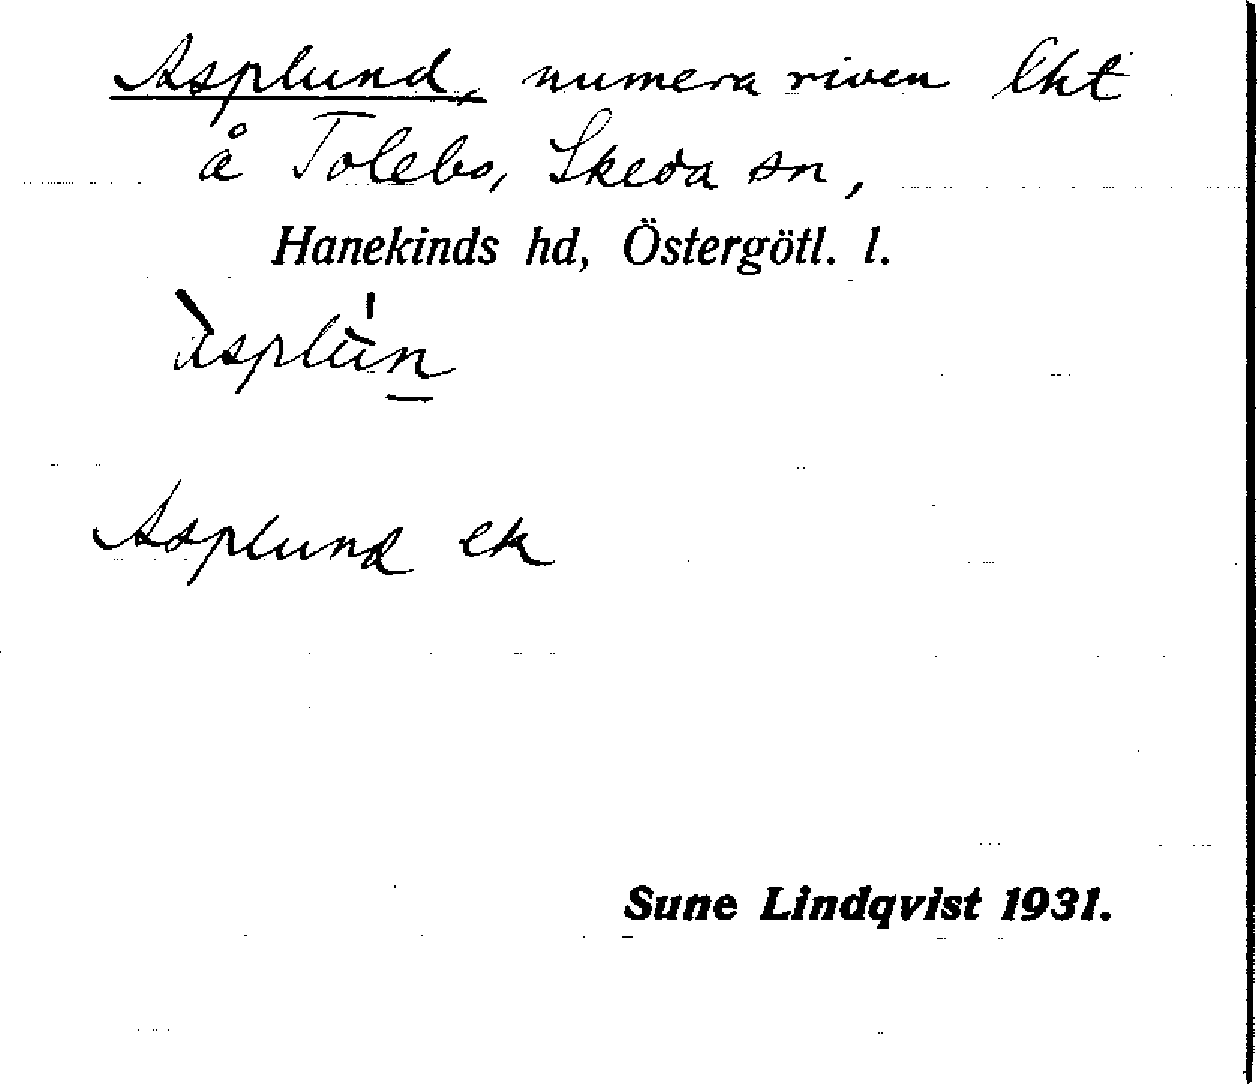 Asplund, numera riven lht
å Tolebo, Skeda sn,
Hanekinds hd, Östergötl. l.
àsplu̇n̲
Asplund ek
Sune Lindqvist 1931.